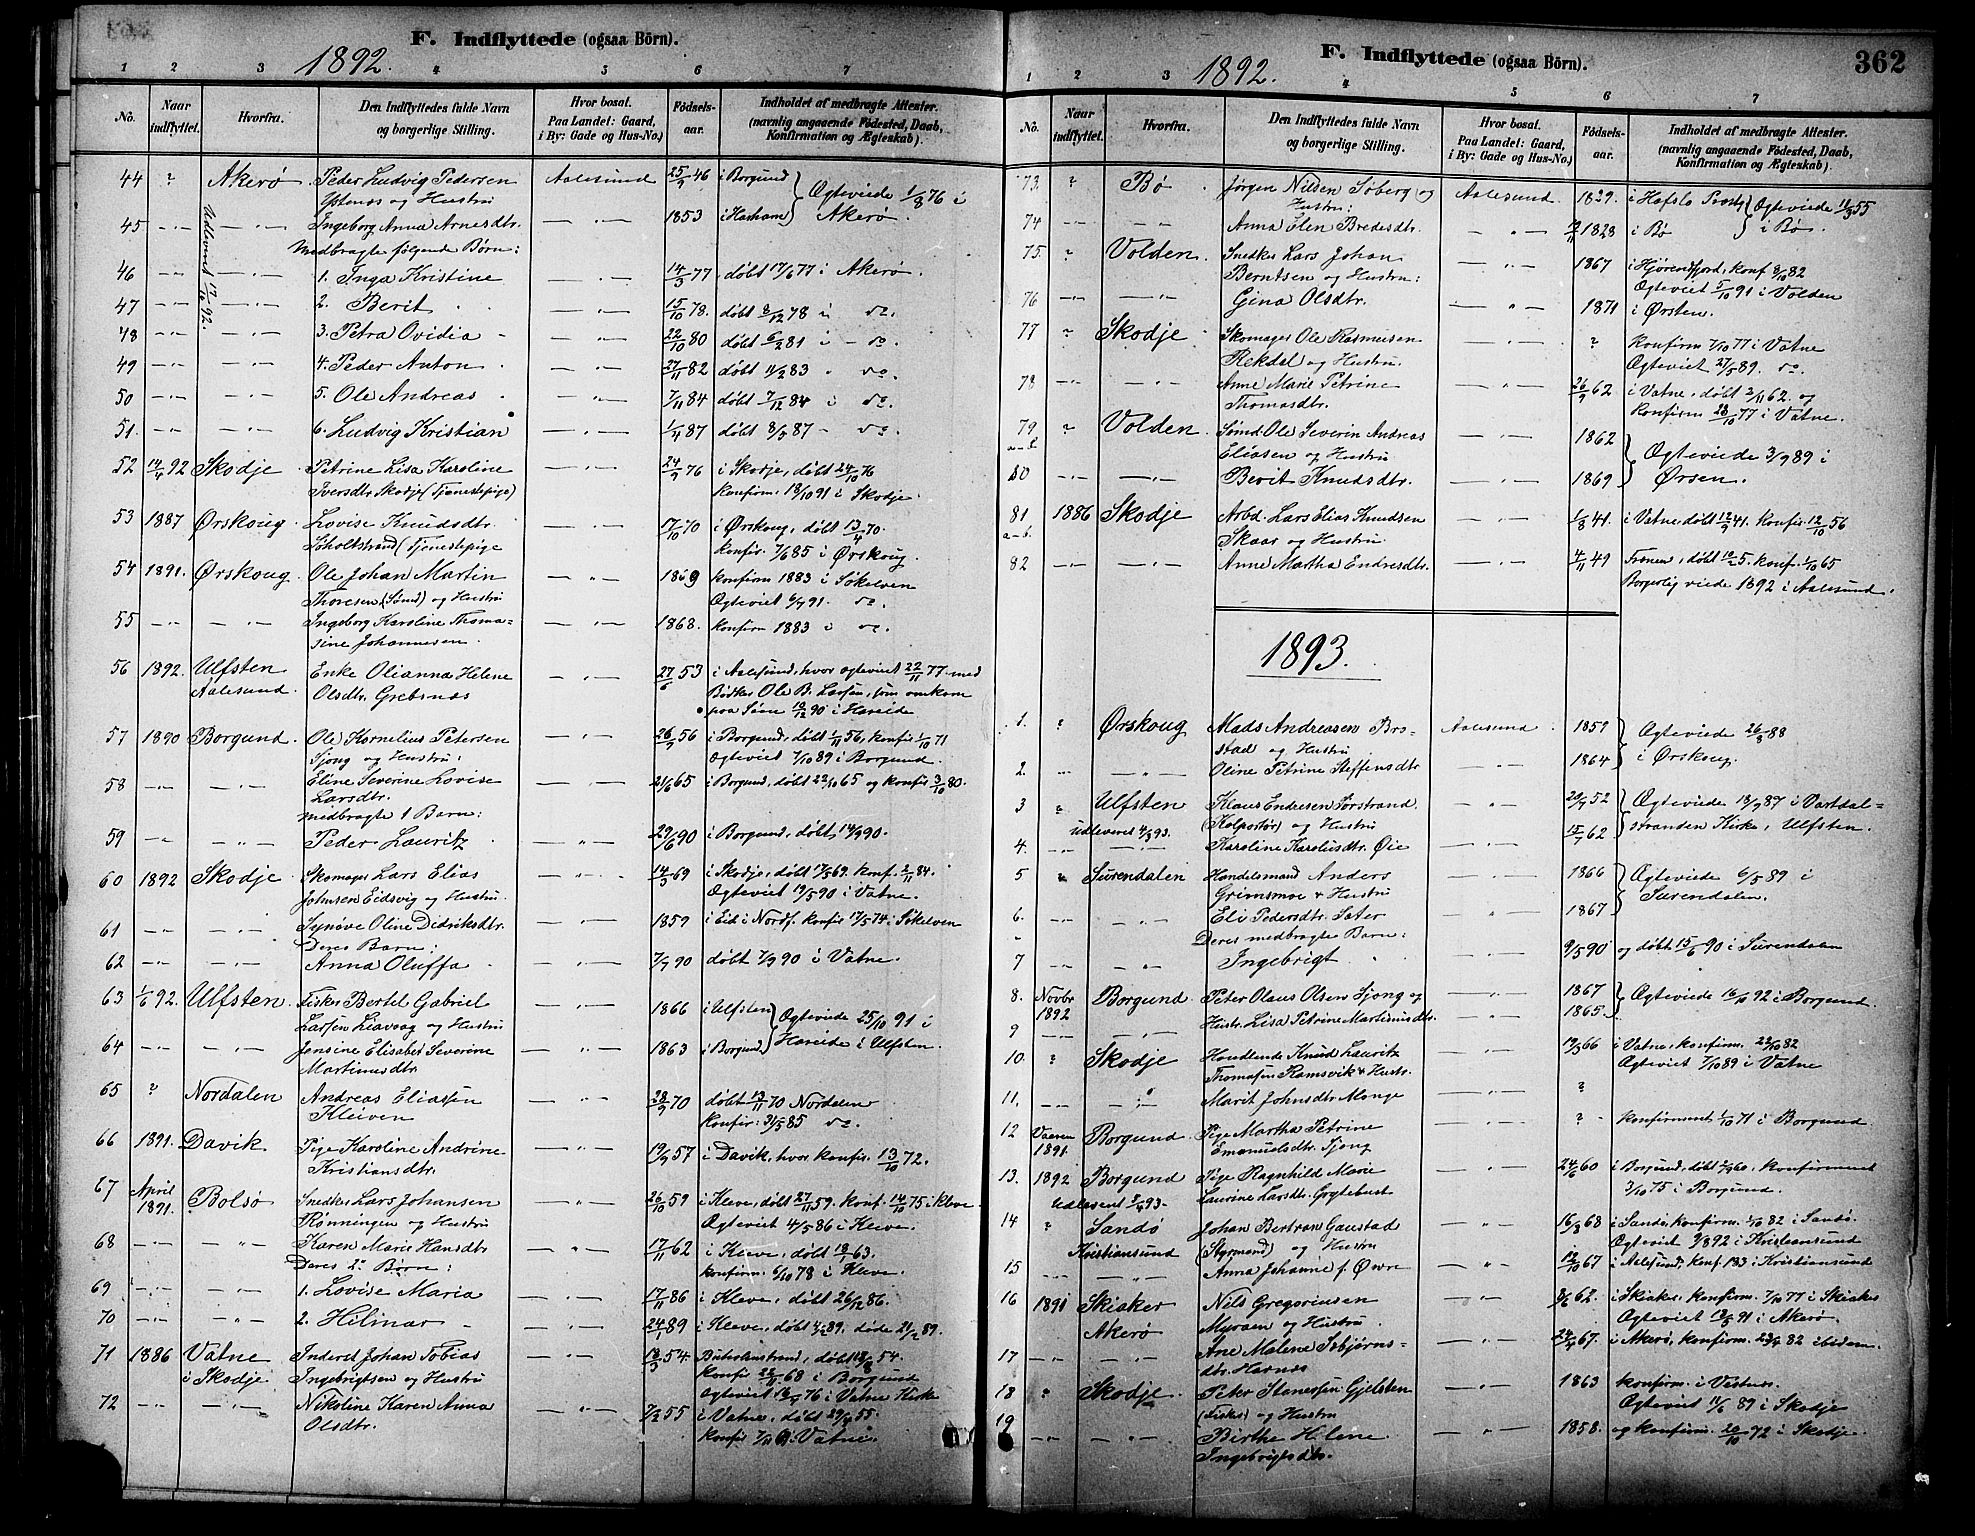 F. Indflyttede (ogsaa Börn).
1892.
1 2 3 4 5 6 7
No.
Naar indflyttet.
Hvorfra.
Den Indflyttedes fulde Navn
og borgerlige Stilling.
Hvor bosat.
Paa Landet: Gaard,
i By: Gade og Hus-No.)
Födsels-
aar.
Indholdet af medbragte Attester.
(navnlig angaaende Födested, Daab,
Konfirmation og Ægteskab).
44 ? Akerø Peder Ludvig Pedersen Aalesund 25/9 46 i Borgund Ogteviede 1/8 76 i
og Hustru
45 Ingeborg Anna Arnesdtr. 1853 i Haram Akerø.
Udleveret 17/10 92.
Medbragte følgende Børn:
46 1. Inga Kristine 14/3 77. døbt 17/6 77 i Akerø.
47 2. Berit 15/10 78. døbt 8/12 78 i do.
48 3. Petra Ovidia 22/10 80 døbt 6/2 81 i do.
49 4. Peder Anton 27/11 82 døbt 11/2 83 do.
50 5. Ole Andreas 7/11 84 døbt 7/12 84 i do.
51. 6. Ludvig Kristian 1/11 87 døbt 8/5 87 do.
52 14/4 92 Skodje Petrine Lisa Karoline 24/9 76 i Skodje, døbt 24/10 76
Iversdtr. Skodje (Tjenestepige) konfirm. 18/10 91 i Skodje.
53 1887 Ørskoug Lovise Knudsdtr. 17/10 70 i Ørskoug, døbt 13/4 70.
Søholtstrand (Tjenestepige konfir. 7/6 85 i Ørskoug
54 1891. Ørskoug Ole Johan Martin 1869 konfirm 1883 i Søkelven
Thoresen (Sømd) og Hustru Ogteviet 6/9 91. do.
55 Ingeborg Karoline Thoma- 1868. konfirm 1883 i do.
sine Johannesen.
56 1892. Ulfsten Enke Olianna Helene 27/6 53 i Aalesund, hvor ogteviet 22/11 77 med
Aalesund Olsdtr. Grebsnæs Bødker Ole B. Larsen, som omkom
paa Søen 10/12 90 i Hareide
57 1890 Borgund. Ole Kornelius Petersen 26/9 56 i Borgund, døbt 1/11 56, konfir 1/10 71
Sjong og Hustru: ogteviet 7/10 89 i Borgund.
58 Eline Severine Lovise 21/6 65 i Borgund, døbt 22/10 65 og konfir. 3/10 80.
Larsdtr.
medbragte 1 Barn:
59 Peder Lauritz 29/6 90 i Borgund, døbt 14/9 90.
60 1892 Skodje Skomager Lars Elias 14/3 69 i Skodje, døbt 17/5 69. konf. 2/11 84.
Johnsen Eidsvig og Hustru. Ogteviet 19/5 90 i Vatne.
61 Synøve Oline Didriksdtr. 1859 i Eid i Nordf. konfir 17/5 74 i Søkelven
Deres Barn:
62 Anna Oluffa. 7/7 90 døbt 7/9 90 i Vatne.
63 1/6 92. Ulfsten. Fisker Bertel Gabriel 1866 i Ulfsten Ogteviede 25/10 91 i
Larsen Liavaag og Hustru
64 Jensine Elisabet Severine 1863 i Borgund Hareide i Ulfsten.
Martinusdtr.
65 ? Nordalen Andreas Eliassen 28/9 70 døbt 13/11 70 Nordalen
Kleiven konfir: 31/5 85 do.
66 1891. Davik Pige Karoline Andrine 19/9 57 i Davik, hvor konfir. 13/10 72.
Kristiansdtr.
67 April 1891. Bolsø Snedker Lars Johansen 26/10 59 i Kleve, døbt 27/11 59. konf. 14/10 75 i Kleve.
Rønningen og Hustru Ogteviet 4/5 86 i Kleve.
68 Karen Marie Hansdtr 17/11 62 i Kleve, døbt 18/ 63.
Deres 2 Børn: konfirm. 6/10 78 i Kleve.
69 1. Lovise Maria 17/11 86 i Kleve, døbt 26/12 86.
70 2. Hilmar 24/ 89 i Kleve, døbt 89. døde 21/2 89.
71 1886 Vatne Inderst Johan Tobias 18/3 54 døbt 54.
i Skodje Ingebrigtsen og Hustru konfir 68 i Borgund
Ogteviet 76 i Vatne Kirke
72 Nikoline Karen Anna 7/2 55 i Vatne, døbt 29/ 55.
Olsdtr. konfir i Vatne.
F. Indflyttede (ogsaa Börn).
362
1892.
1 2 3 4 5 6 7
No.
Naar indflyttet.
Hvorfra.
Den Indflyttedes fulde Navn
og borgerlige Stilling.
Hvor bosat.
Paa Landet: Gaard,
i By: Gade og Hus-No.)
Födsels-
aar.
Indholdet af medbragte Attester.
(navnlig angaaende Födested, Daab,
Konfirmation og Ægteskab).
73. ? Bø Jørgen Nilsen Soberg og Aalesund. 1829. i Hafslo Ogteviede 11/ 55
Hustru:
74 Anna Elen Bredesdtr. 1828 i Bø i Bø.
75. ? Volden Snedker Lars Johan 1867 i Hjørendfjord, konf 8/10 82
Berntsen og Hustru: Ogteviet 5/10 91 i Volden
76 Gina Olsdtr. 1871 i Ørsten.
77 ? Skodje Skomager Ole Rasmusen ? konfirm 7/10 77 i Vatne
Rekdal og Hustru Ogteviet 27/5 89. do.
78 Anne Marie Petrine 26/9 62 i Vatne, døbt 2/11 62. og
Thomasdtr. konfirm 28/10 77 i Vatne.
79 a-b ? Volden Sømd. Ole Severin Andreas 1862 Ogteviede 3/9 89 i
Eliasen og Hustru
80 Berit Knudsdtr. 1869 Ørsen.
81 a-b. 1886 Skodje Arbd. Lars Elias Knudsen 1/8 41. i Vatne, døbt 12/9 41. konfir. 12/10 56
Skaar og Hustru
82 Anne Martha Endresdtr. 4/11 49 døbt konf. 1/10 65
Borgerlig viede 1892 i Aalesund.
1893.
1. ? Ørskoug Mads Andreasen Bro- Aalesund 1857 Ogteviede 26/8 88
stad og Hustru
2. Oline Petrine Steffensdtr 1864 i Ørskoug.
3 ? Ulfsten Klaus Endresen Sørstrand 20/9 52 Ogteviede 18/9 87 i Vartdal-
udleveret 4/9 93. (Kolportør) og Hustru stranden Kirke, Ulfsten.
4. Karoline Karolusdtr. Øie 15/7 62
5 Surendalen Handelsmand Anders 1866 Ogteviede 6/5 89 i
Grimsmoe & Hustru
6. Eli Pedersdtr. Sæter 1867 Surendalen.
Deres medbragte Barn:
7 Ingebrigt 9/5 90 og døbt 15/6 90 i Surendalen
8. Novbr 1892 Borgund. Peter Olaus Olsen Sjong og 1867 Ogteviede 16/10 92 i Borgund.
9 Hustr. Lisa Petrine Martinusdtr. 1865.
10. ? Skodje Handlende Knud Lauritz 19/3 66 i Vatne, konfirm. 22/10 82
Thomasen Ramsvik & Hustr. Ogteviet 7/10 89 i Vatne
11. Marit Johnsdtr Monge ?
12 Vaaren 1891. Borgund. Pige Martha Petrine ? konfirmeret 1/10 71 i Borgund
Emanuelsdtr. Sjong
13. 1892 Borgund Pige Ragnhild Marie 24/6 60 i Borgund, døbt 60. konfirmeret
Udleveret 93. Laurine Larsdtr. Grytebust 3/10 75 i Borgund.
14 ? Sandø Johan Bertran Gaustad 16/8 68 i Sandø, konfirm. 1/10 82 i Sandø.
Kristiansund (Styrmand) og Hustru Ogteviet 92 i Kristiansund
15 Anna Johanne f. Øwre 12/10 67 i Aalesund, konf. 183 i Kristiansund
16 1891 Skiaker Nils Gregoriusen 62. i Skiaker, konfirm. 7/10 77 i Skiaker
Akerø Myraen og Hustru Ogteviet 91 i Akerø
17 Ane Malene Asbjørns- 24/ 67. i Akerø, konfirm. 82 ibidem.
dtr. Harnæs
18 ? Skodje. Peter Gjelsten 1863 konfirm. i Vestnes.
(Fisker) og Hustru Ogteviet 89 i Skodje
19 Birthe Helene 1858. og konfirm. 20/10 72 i Skodje.
Ingebrigtsdtr.